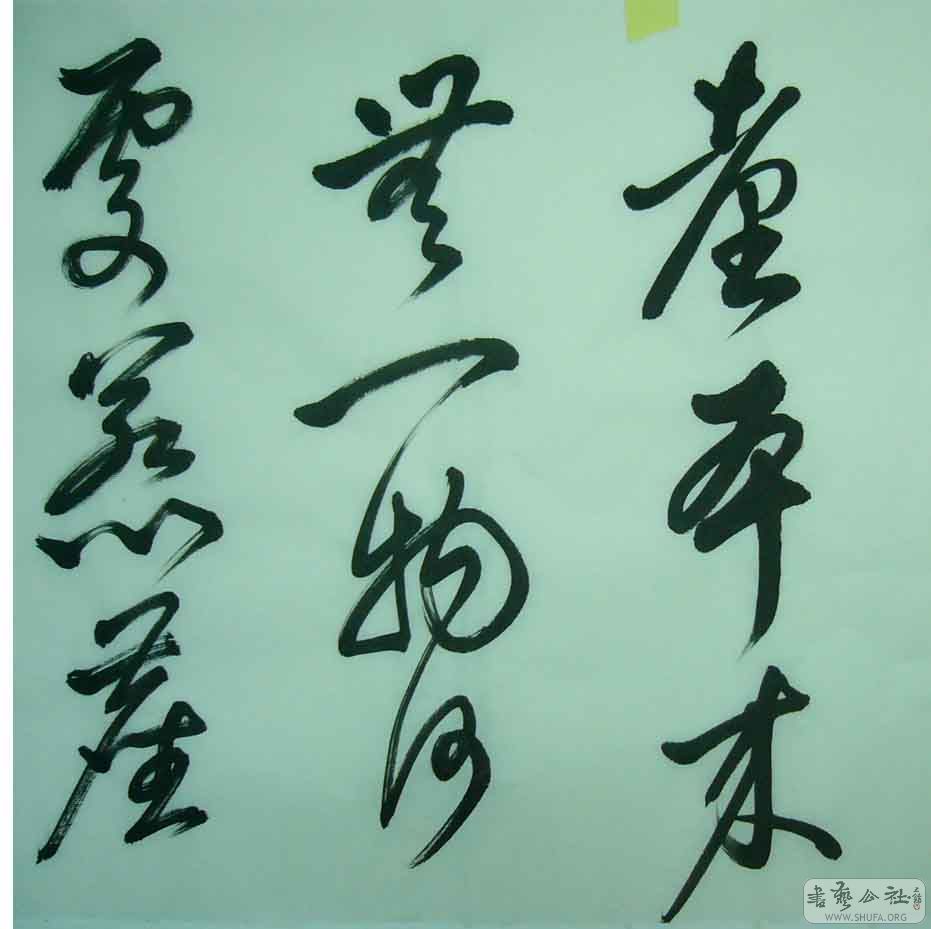 臺本来
無一物何
處惹塵
書藝公社
WWW.SHUFA.ORG